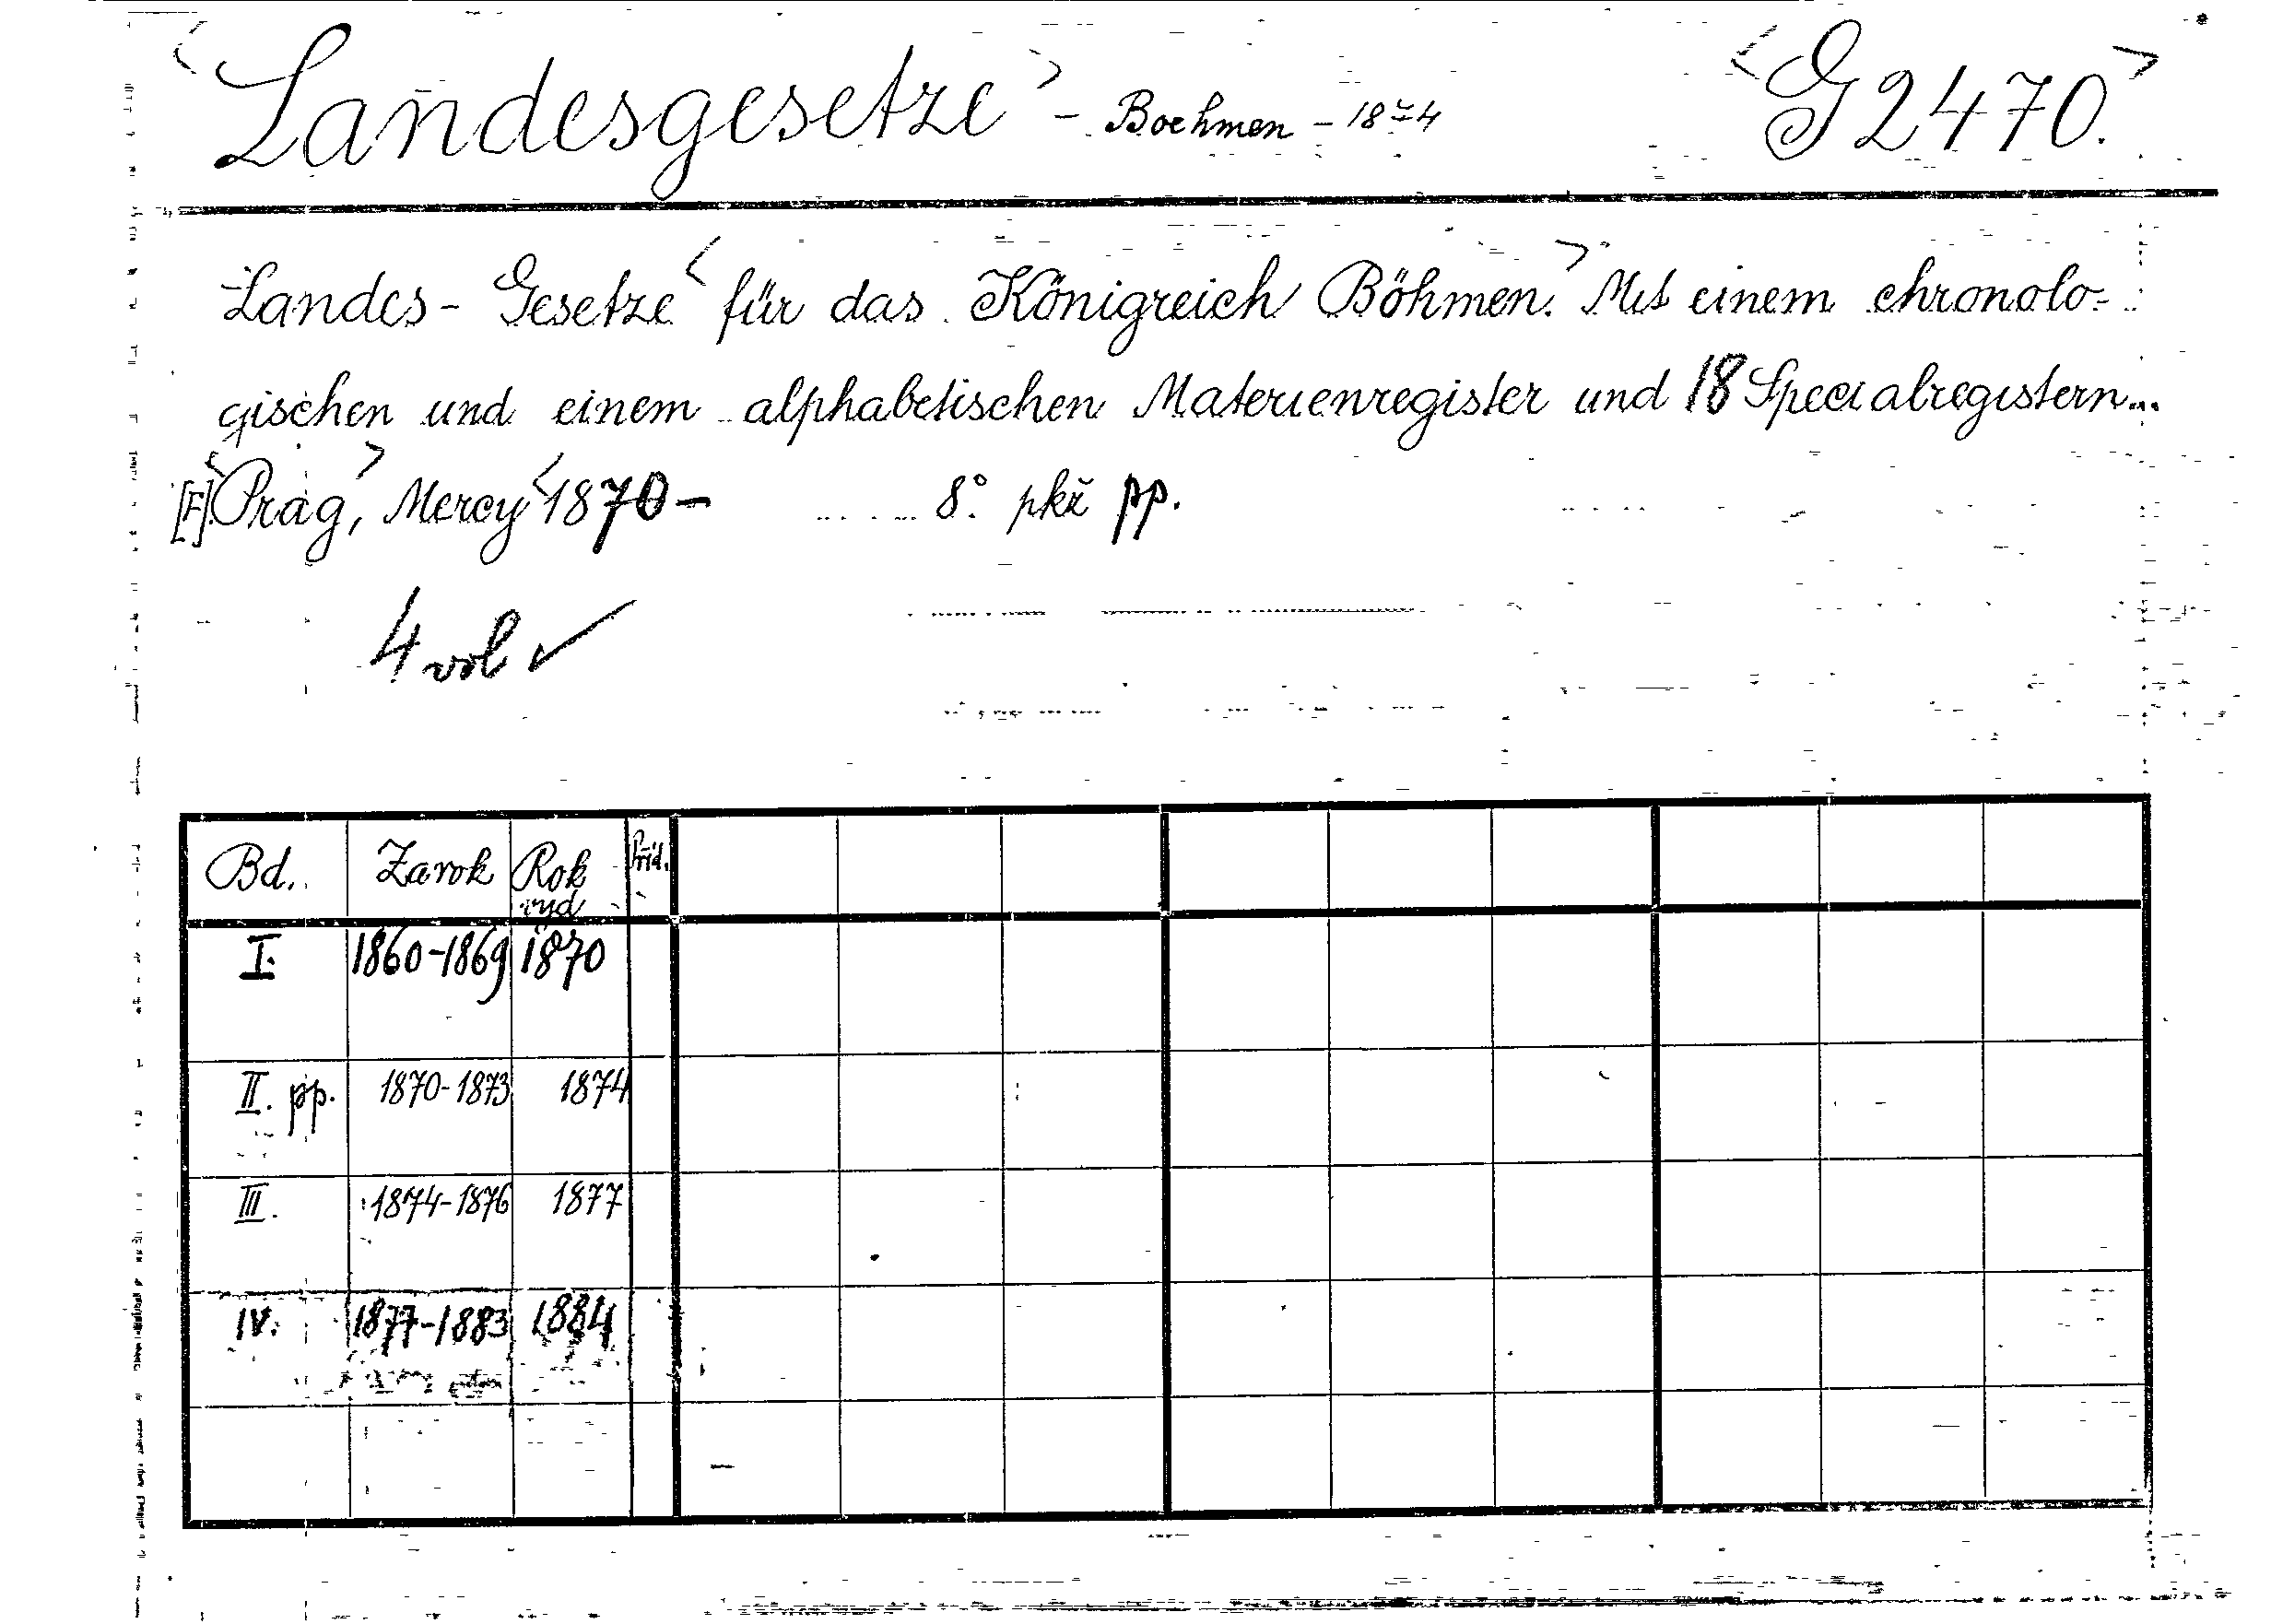 <Landesgesetze> - Boehmen - 1874 <G 2470.>
Landes- Gesetze <für das Königreich Böhmen.> Mit einem chronolo-
gischen und einem alphabetischen Materienregister und 18 Specialregistern...
[F].<Prag>, Mercy <1870- 8° pkž pp.
4 vol ✓
Bd. Zarok Rok vyd Příd.
I. 1860-1869 1870
II. pp. 1870-1873 1874
III. 1874-1876 1877
IV. 1877-1883 1884